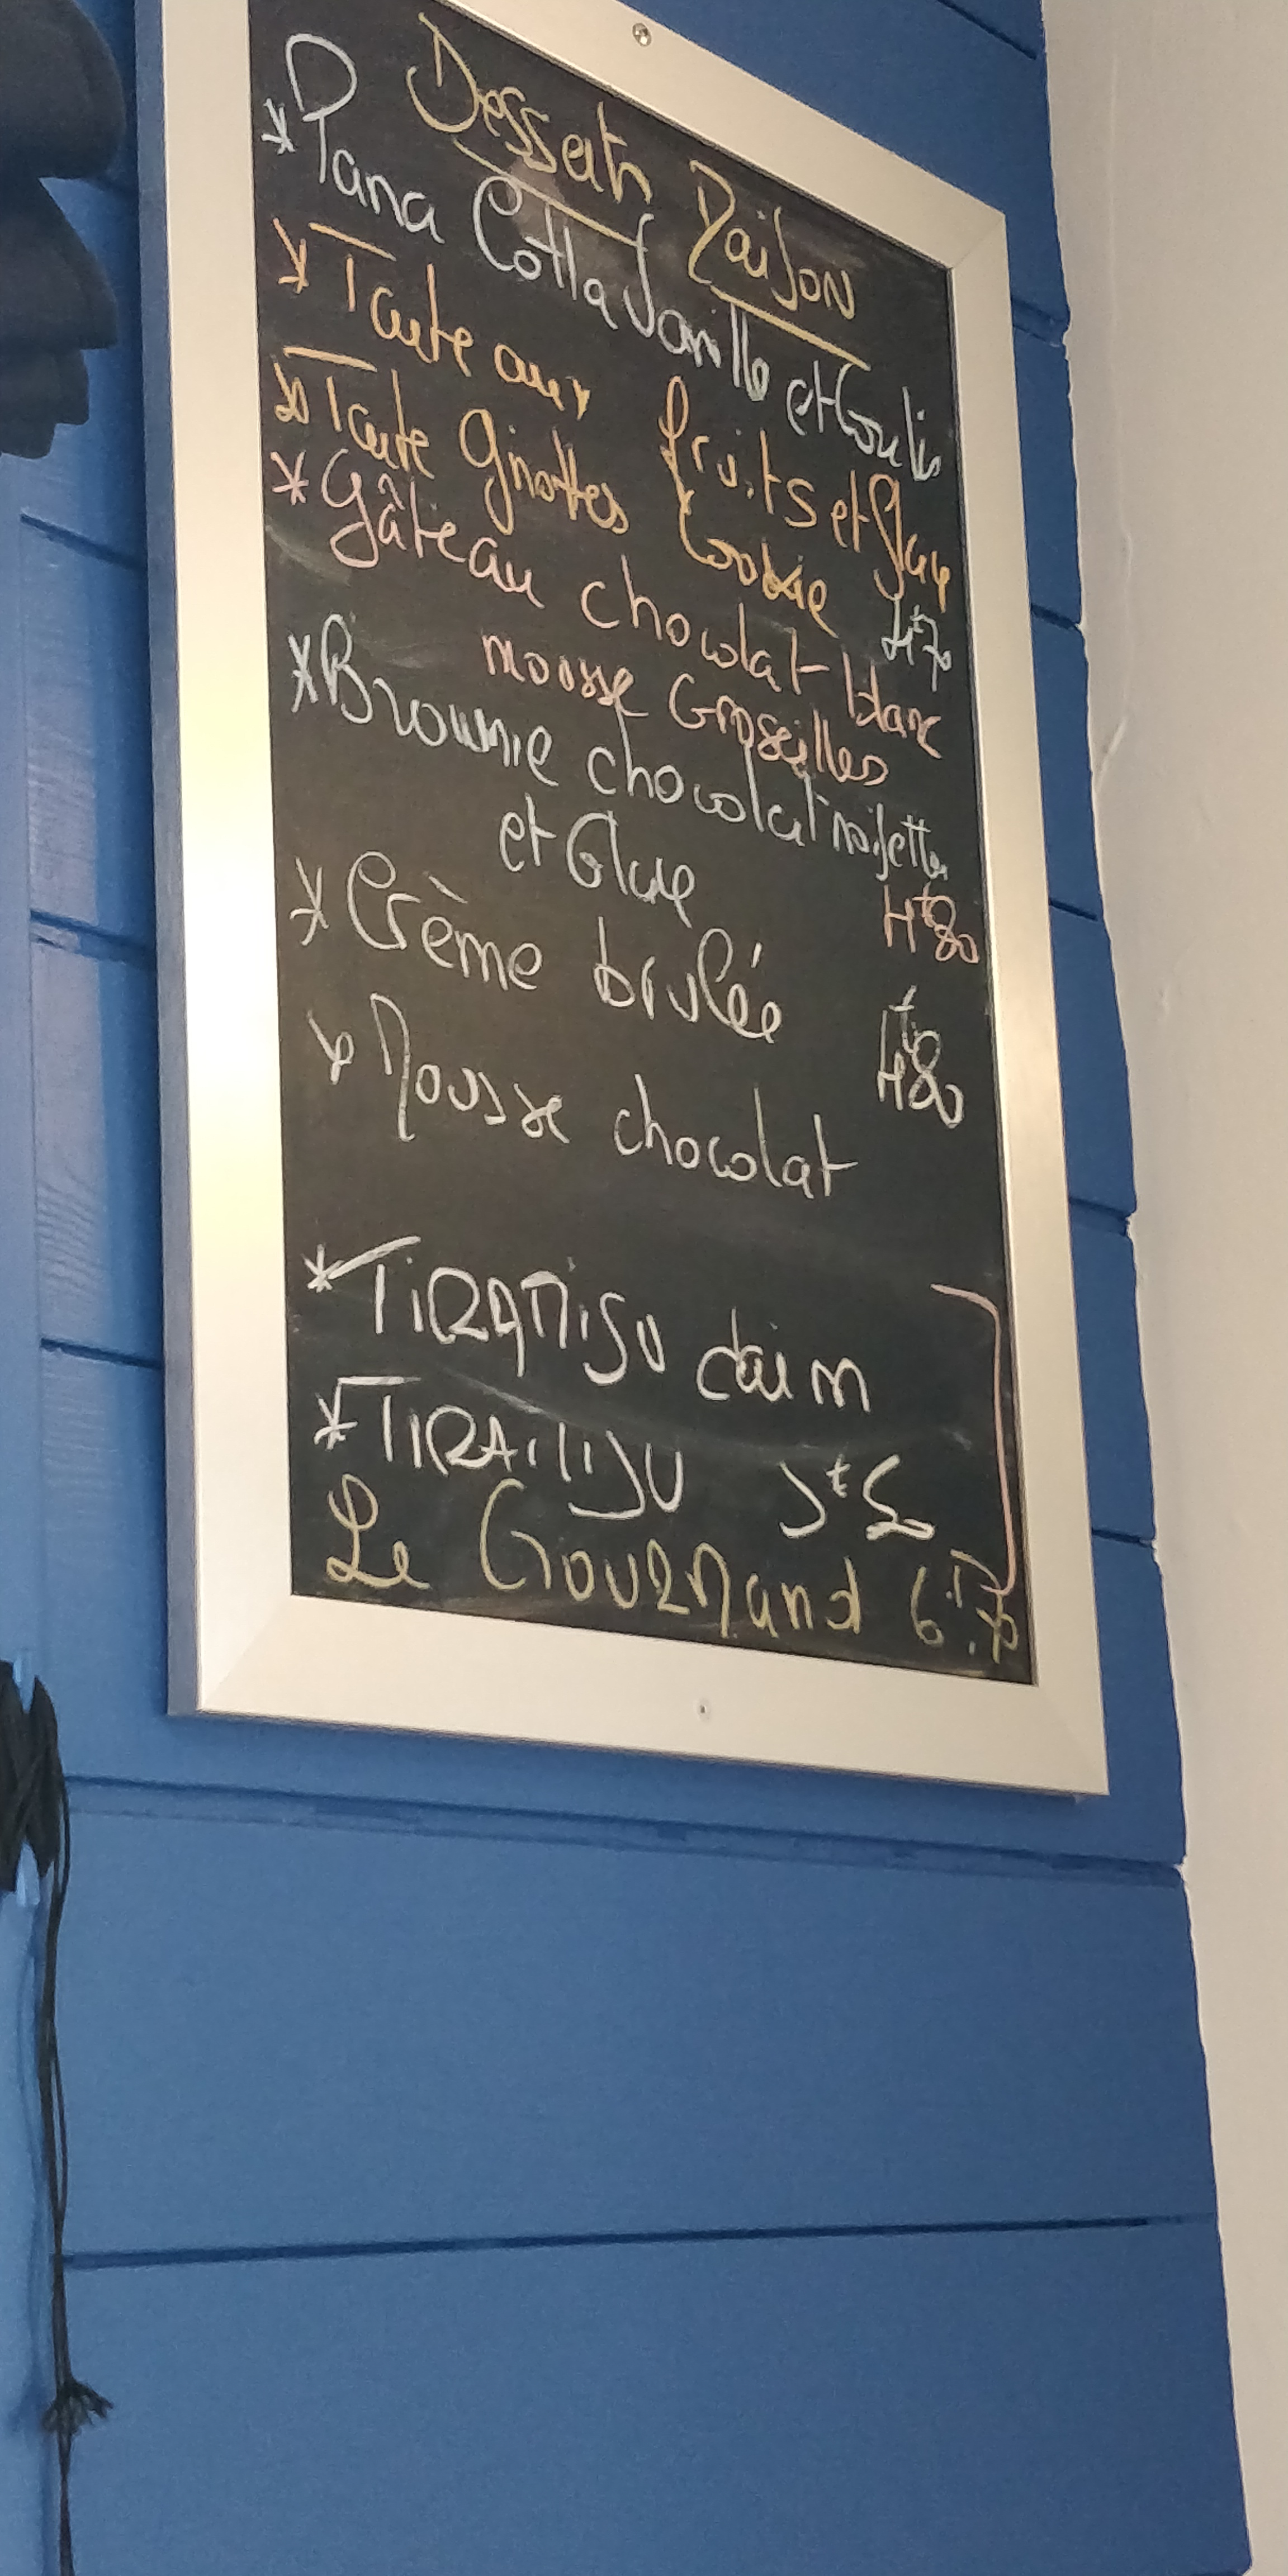 Desserts Maison
* Pana Cotta Vanille et Coulis
* Tarte aux fruits et Glace
* Tarte Griottes Cookie 4€70
* Gâteau chocolat blanc
mousse Groseilles
* Brownie chocolat noisettes
et Glace 4€80
* Crème brulée 4€80
* Mousse chocolat
* TiRAMiSU daim
* TIRAMISU
Le GOURMand 6€70